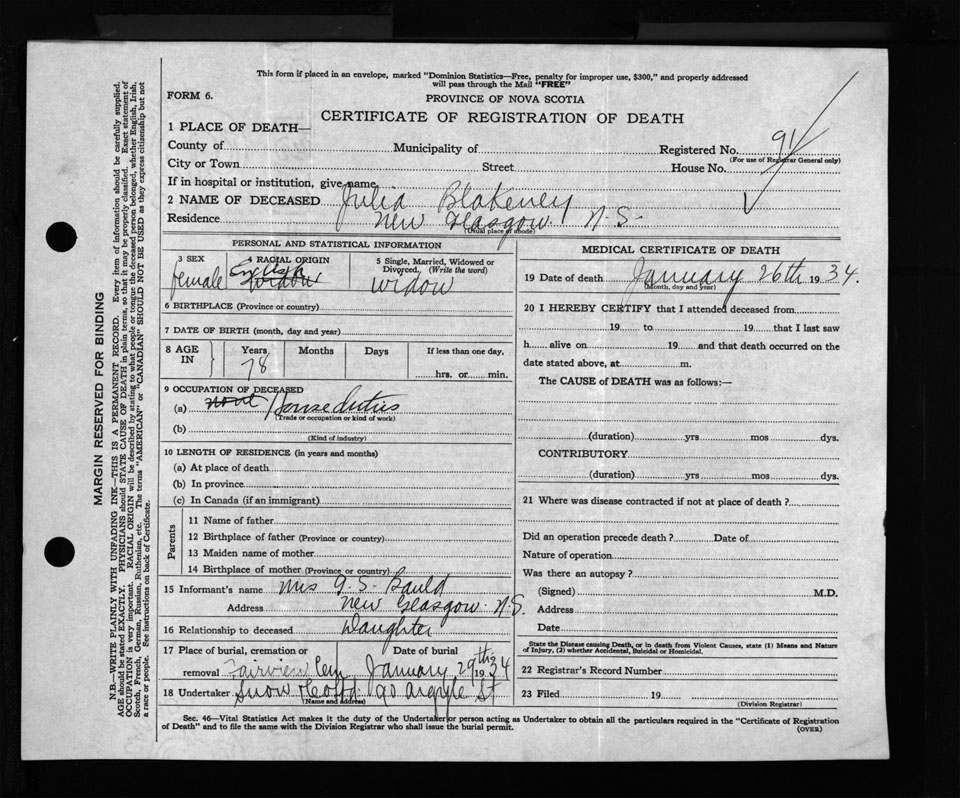 This form if placed in an envelope, marked "Dominion Statistics—Free, penalty for improper use, $300," and properly addressed
will pass through the Mail "FREE"
FORM 6.
PROVINCE OF NOVA SCOTIA
CERTIFICATE OF REGISTRATION OF DEATH
1 PLACE OF DEATH—
County of Municipality of Registered No. 91
(For use of Registrar General only)
City or Town Street House No.
If in hospital or institution, give name
2 NAME OF DECEASED Julia Blakeney
Residence New Glasgow. N.S.
(Usual place of abode)
PERSONAL AND STATISTICAL INFORMATION
3 SEX 4 RACIAL ORIGIN 5 Single, Married, Widowed or
Divorced. (Write the word)
female English widow widow
6 BIRTHPLACE (Province or country)
7 DATE OF BIRTH (month, day and year)
8 AGE IN Years Months Days If less than one day,
78 hrs. or min.
9 OCCUPATION OF DECEASED
(a) House duties
(Trade or occupation or kind of work)
(b)
(Kind of industry)
10 LENGTH OF RESIDENCE (in years and months)
(a) At place of death
(b) In province
(c) In Canada (if an immigrant)
Parents
11 Name of father
12 Birthplace of father (Province or country)
13 Maiden name of mother
14 Birthplace of mother (Province or country)
15 Informant's name Mrs G. S. Bauld
Address New Glasgow. N.S.
16 Relationship to deceased Daughter
17 Place of burial, cremation or Date of burial
removal Fairview Cem January 29th 1934
18 Undertaker Snow & Co Ltd. 90 Argyle St
(Name and address)
MEDICAL CERTIFICATE OF DEATH
19 Date of death January 26th 1934.
(Month, day and year)
20 I HEREBY CERTIFY that I attended deceased from
19 to 19 that I last saw
h alive on 19 and that death occurred on the
date stated above, at m.
The CAUSE of DEATH was as follows:—
(duration) yrs mos dys.
CONTRIBUTORY
(duration) yrs mos dys.
21 Where was disease contracted if not at place of death?
Did an operation precede death? Date of
Nature of operation
Was there an autopsy?
(Signed) M.D.
Address
Date
State the Disease causing Death, or in death from Violent Causes, state (1) Means and Nature
of Injury, (2) whether Accidental, Suicidal or Homicidal.
22 Registrar's Record Number
23 Filed 19
(Division Registrar)
Sec. 46—Vital Statistics Act makes it the duty of the Undertaker or person acting as Undertaker to obtain all the particulars required in the "Certificate of Registration
of Death" and to file the same with the Division Registrar who shall issue the burial permit.
(OVER)
MARGIN RESERVED FOR BINDING
N.B.—WRITE PLAINLY WITH UNFADING INK—THIS IS A PERMANENT RECORD. Every item of information should be carefully supplied.
AGE should be stated EXACTLY. PHYSICIANS should STATE CAUSE OF DEATH in plain terms, so that it may be properly classified. Exact statement of
OCCUPATION is very important. RACIAL ORIGIN will be described by stating to what people or tongue the deceased person belonged, whether English, Irish,
Scotch, French, German, Russian, Ruthenian, etc. The terms "AMERICAN" or "CANADIAN" SHOULD NOT BE USED as they express citizenship but not
a race or people. See instructions on back of Certificate.